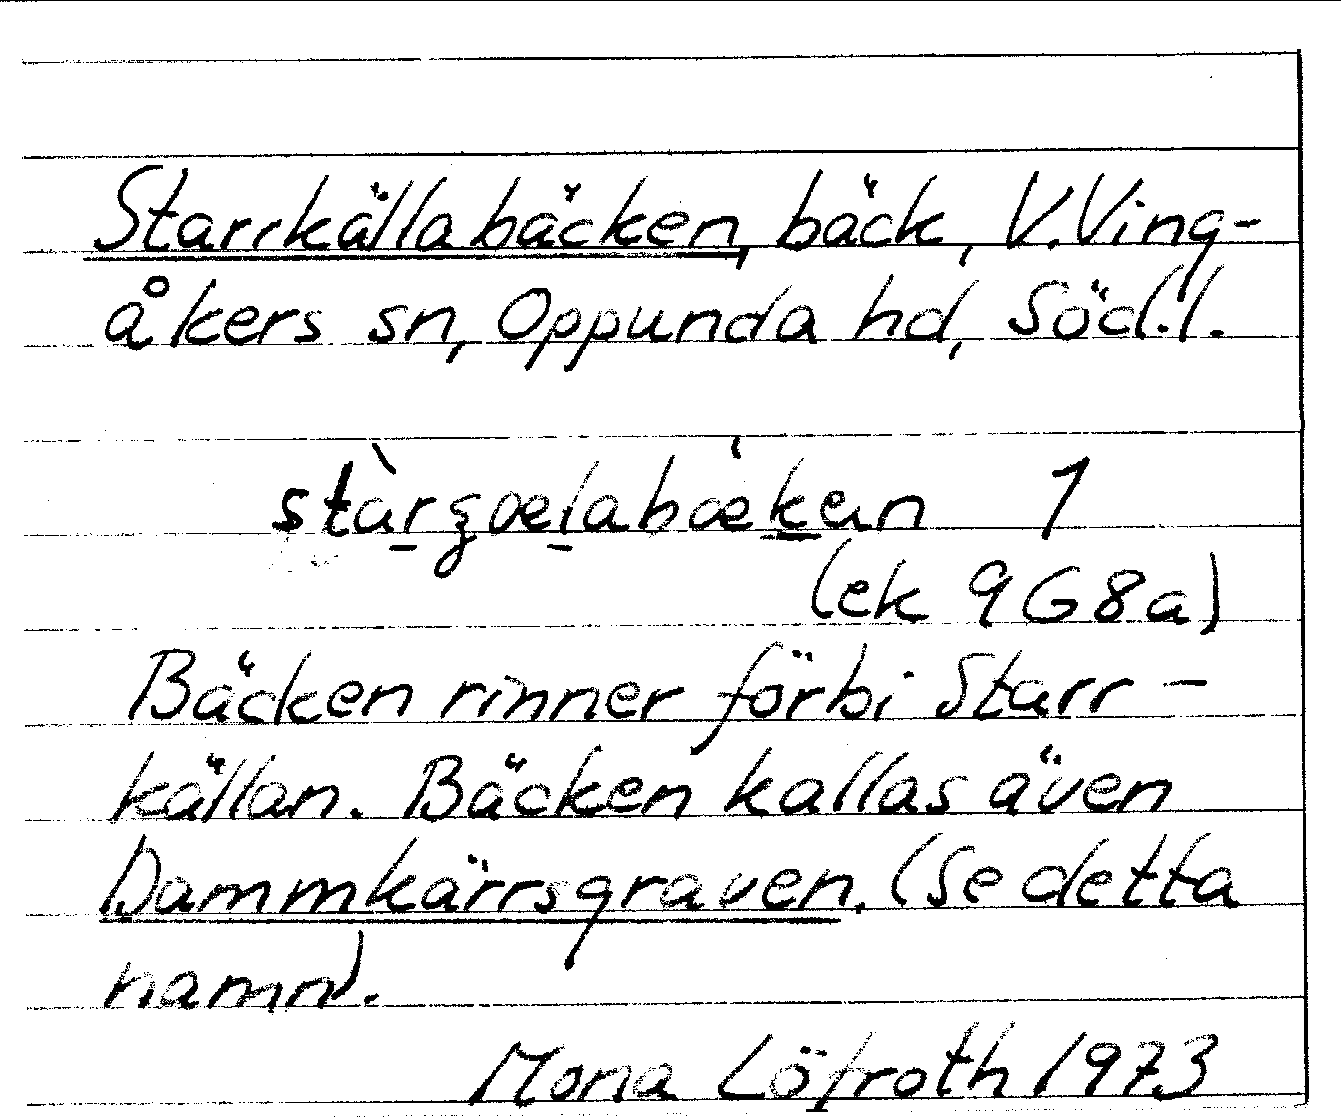 Starrkällabäcken, bäck, V.Ving-
åkers sn, Oppunda hd, Söd.l.
1
(ek 9G8a)
Bäcken rinner förbi Starr-
källan. Bäcken kallas även
Dammkärrsgraven. (Se detta
namn).
Mona Löfroth 1973